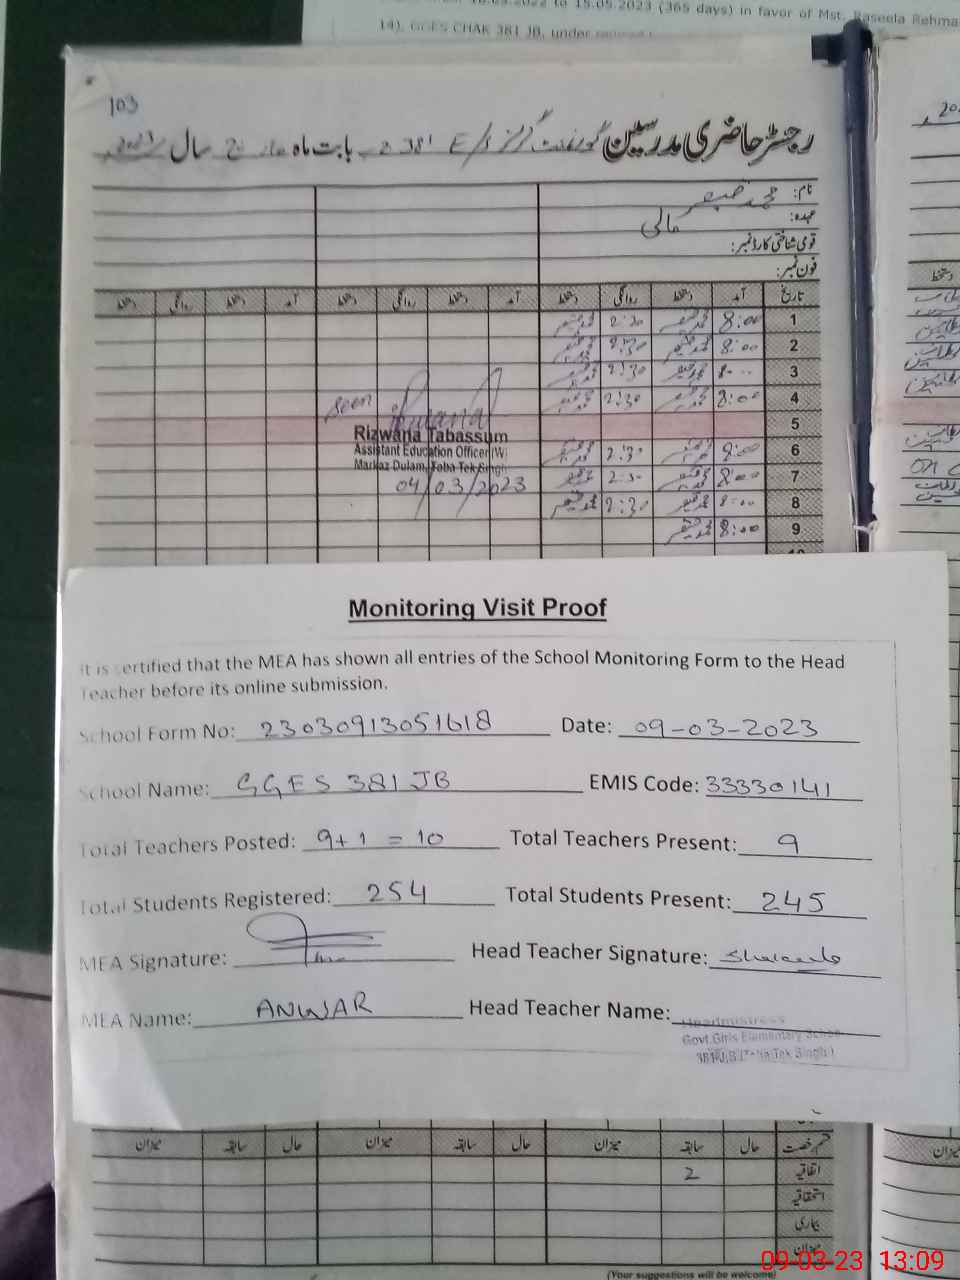 to 15.05.2023 (365 days) in favor of Mst. Raseela Rehma
14), GGES CHAK 381 JB, under
103
رجسٹر حاضری مدرسین گورنمنٹ گرلز E/S 381 بابت ماہ مارچ سال 2023
نام: محمد
عہدہ: مالی
قومی شناختی کارڈ نمبر:
فون نمبر:
تاریخ آمد دستخط روانگی دستخط آمد دستخط روانگی دستخط آمد دستخط روانگی دستخط
1 8:00 2:30
2 8:00 2:30
3 8:00 2:30
4 8:00 2:30
5
6 8:00 2:30
7 8:00 2:30
8 8:00 2:30
9 8:00
Seen
Rizwana Tabassum
Assistant Education Officer (W)
Markaz Dulam, Toba Tek Singh
04/03/2023
Monitoring Visit Proof
It is certified that the MEA has shown all entries of the School Monitoring Form to the Head
Teacher before its online submission.
School Form No: 23030913051618 Date: 09-03-2023
School Name: GGES 381 JB EMIS Code: 33330141
Total Teachers Posted: 9+1 = 10 Total Teachers Present: 9
Total Students Registered: 254 Total Students Present: 245
MEA Signature: Head Teacher Signature:
MEA Name: ANWAR Head Teacher Name:
Headmistress
Govt. Girls Elementary School
381 J.B (Toba Tek Singh)
قسم رخصت حال سابقہ میزان حال سابقہ میزان حال سابقہ میزان
اتفاقیہ 2
استحقاقیہ
بیماری
میزان
(Your suggestions will be welcome)
09-03-23 13:09